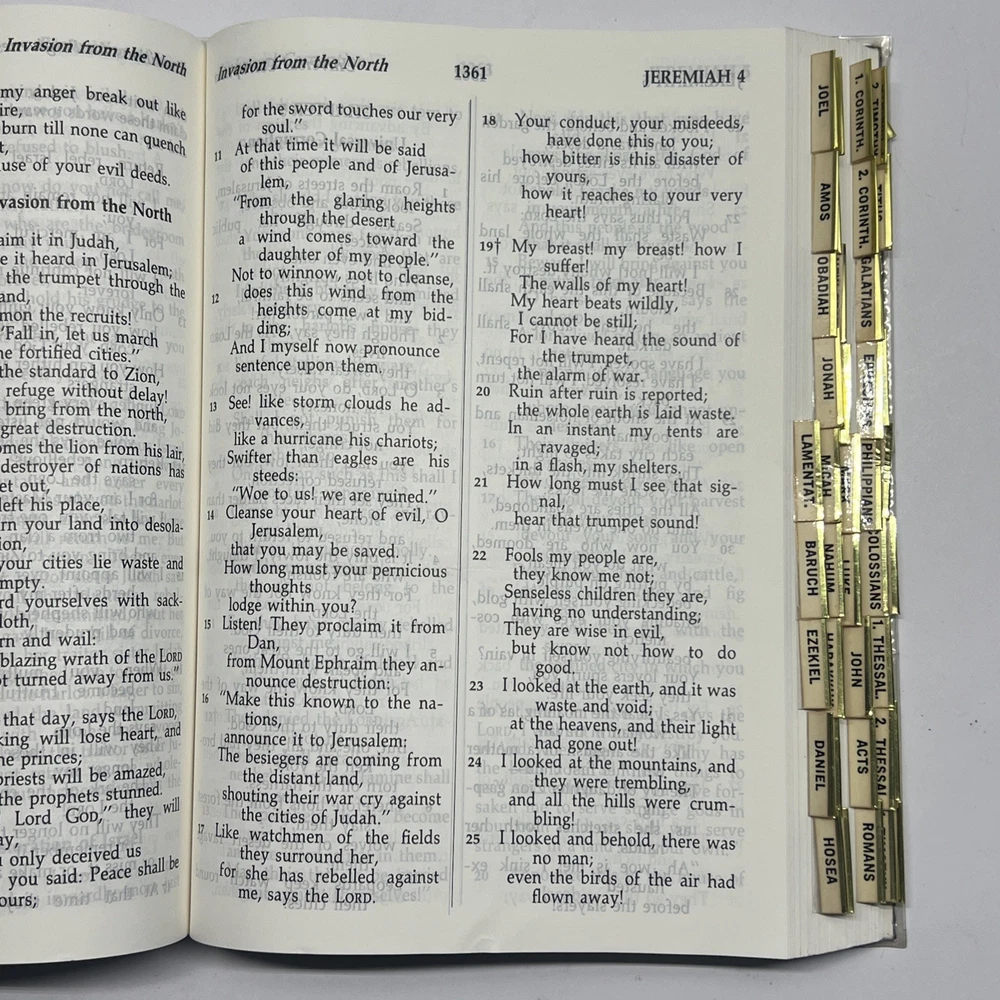 Invasion from the North
my anger break out like
burn till none can quench
use of your evil deeds.
from the North
it in Judah,
it heard in Jerusalem;
the trumpet through the
the recruits!
"Fall in, let us march
fortified cities."
the standard to Zion,
refuge without delay!
bring from the north,
great destruction.
the lion from his lair,
destroyer of nations has
out,
left his place,
your land into
your cities lie waste and
yourselves with sack-
and wail:
blazing wrath of the LORD
turned away from us."
that day, says the LORD,
will lose heart, and
princes;
priests will be amazed,
the prophets stunned.
Lord GOD," they will
only deceived us
you said: Peace shall be
Invasion from the North
1361
JEREMIAH 4
for the sword touches our very
soul."
11 At that time it will be said
of this people and of Jerusa-
lem,
"From the glaring heights
through the desert
a wind comes toward the
daughter of my people."
Not to winnow, not to cleanse,
12 does this wind from the
heights come at my bid-
ding;
And I myself now pronounce
sentence upon them.
13 See! like storm clouds he ad-
vances,
like a hurricane his chariots;
Swifter than eagles are his
steeds:
"Woe to us! we are ruined."
14 Cleanse your heart of evil, O
Jerusalem,
that you may be saved.
How long must your pernicious
thoughts
lodge within you?
15 Listen! They proclaim it from
Dan,
from Mount Ephraim they an-
nounce destruction:
16 "Make this known to the na-
tions,
announce it to Jerusalem:
The besiegers are coming from
the distant land,
shouting their war cry against
the cities of Judah."
17 Like watchmen of the fields
they surround her,
for she has rebelled against
me, says the LORD.
18 Your conduct, your misdeeds,
have done this to you;
how bitter is this disaster of
yours,
how it reaches to your very
heart!
19† My breast! my breast! how I
suffer!
The walls of my heart!
My heart beats wildly,
I cannot be still;
For I have heard the sound of
the trumpet,
the alarm of war.
20 Ruin after ruin is reported;
the whole earth is laid waste.
In an instant my tents are
ravaged;
in a flash, my shelters.
21 How long must I see that sig-
nal,
hear that trumpet sound!
22 Fools my people are,
they know me not;
Senseless children they are,
having no understanding;
They are wise in evil,
but know not how to do
good.
23 I looked at the earth, and it was
waste and void;
at the heavens, and their light
had gone out!
24 I looked at the mountains, and
they were trembling,
and all the hills were crum-
bling!
25 I looked and behold, there was
no man;
even the birds of the air had
flown away!
JOEL
AMOS
OBADIAH
JONAH
LAMENTAT.
MICAH
BARUCH
NAHUM
LUKE
EZEKIEL
JOHN
DANIEL
ACTS
HOSEA
ROMANS
1. CORINTH.
2. CORINTH.
GALATIANS
PHILIPPIANS
COLOSSIANS
1. THESSAL.
2. THESSAL.
2. TIMOTHY